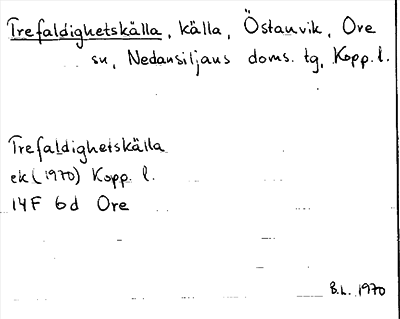 Trefaldighetskälla, källa, Östanvik, Ore
sn, Nedansiljans doms. tg, Kopp. l.
Trefaldighetskälla
ek (1970) Kopp. l.
14F 6d Ore
B.L. 1970